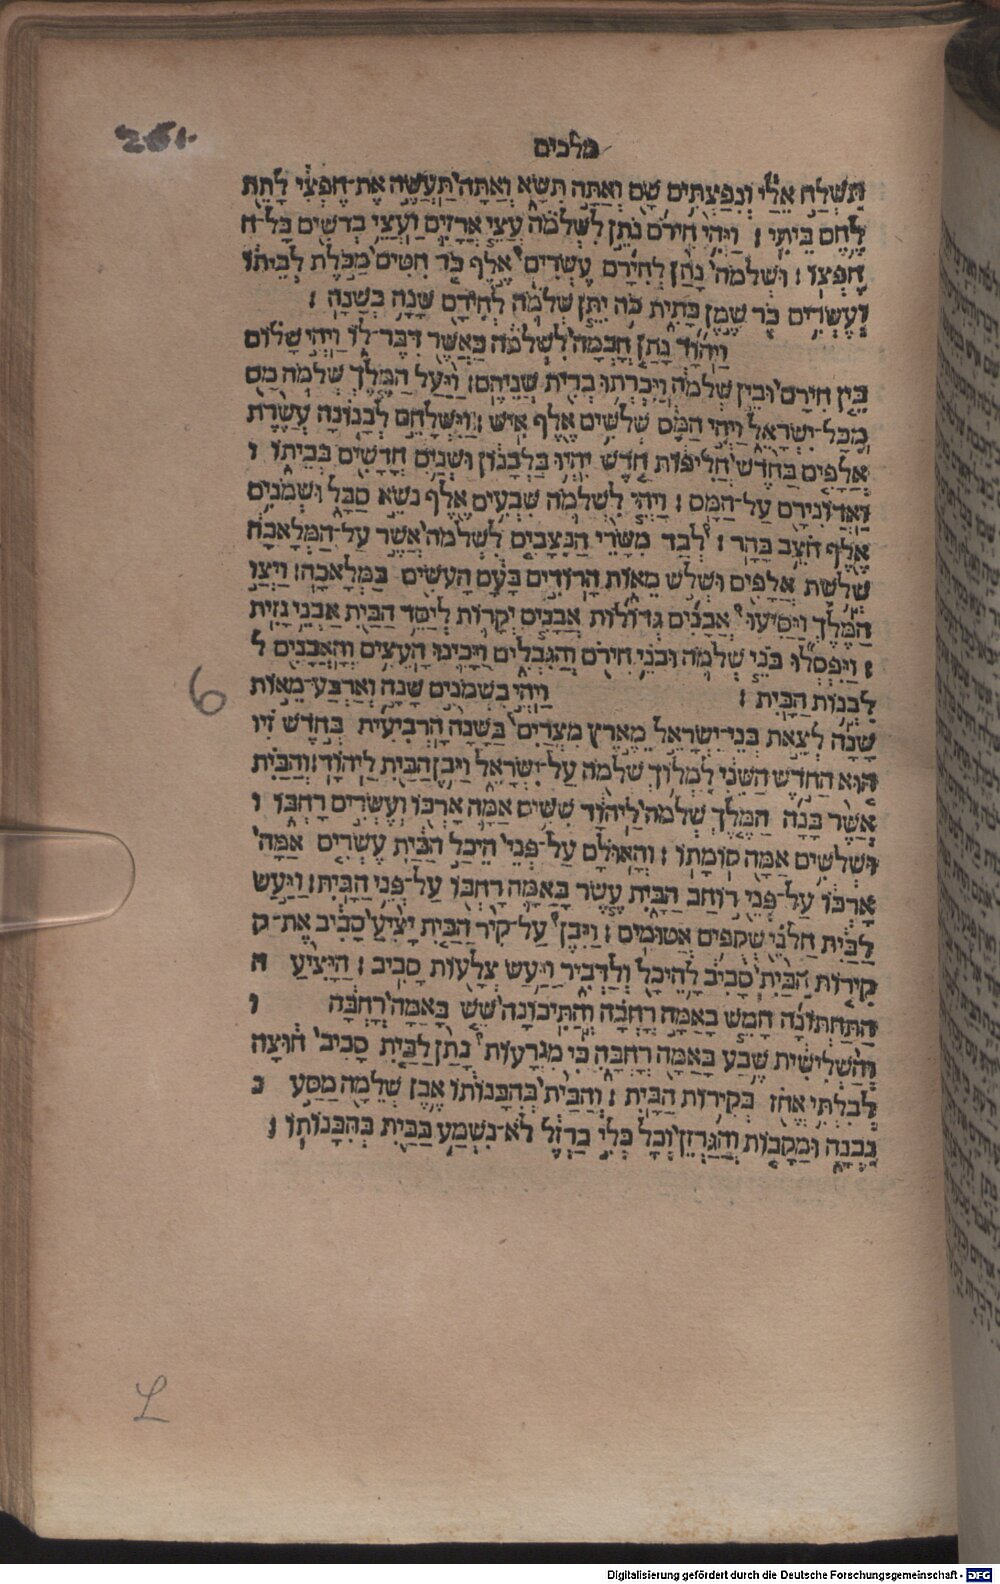 261
מלכים
תִּשְׁלַח אֵלַי וְנִפַּצְתִּים שָׁם וְאַתָּה תִשָּׂא וְאַתָּה תַּעֲשֶׂה אֶת־חֶפְצִי לָתֵת
לֶחֶם בֵּיתִי ׃ וַיְהִי חִירֹם נֹתֵן לִשְׁלֹמֹה עֲצֵי אֲרָזִים וַעֲצֵי בְרֹשִׁים כָּל־ח
חֶפְצוֹ ׃ וּשְׁלֹמֹה נָתַן לְחִירָם עֶשְׂרִים אֶלֶף כֹּר חִטִּים מַכֹּלֶת לְבֵיתוֹ
וְעֶשְׂרִים כֹּר שֶׁמֶן כָּתִית כֹּה יִתֵּן שְׁלֹמֹה לְחִירָם שָׁנָה בְשָׁנָה ׃
וַיהוָֹד נָתַן חָכְמָה לִשְׁלֹמֹה כַּאֲשֶׁר דִּבֶּר־לוֹ וַיְהִי שָׁלוֹם
בֵּין חִירָם וּבֵין שְׁלֹמֹה וַיִּכְרְתוּ בְרִית שְׁנֵיהֶם׃ וַיַּעַל הַמֶּלֶךְ שְׁלֹמֹה מַס
מִכָּל־יִשְׂרָאֵל וַיְהִי הַמַּס שְׁלֹשִׁים אֶלֶף אִישׁ ׃ וַיִּשְׁלָחֵם לְבָנוֹנָה עֲשֶׂרֶת
אֲלָפִים בַּחֹדֶשׁ חֲלִיפוֹת חֹדֶשׁ יִהְיוּ בַלְּבָנוֹן וּשְׁנַיִם חֳדָשִׁים בְּבֵיתוֹ ו
וַאֲדוֹנִירָם עַל־הַמַּס ׃ וַיְהִי לִשְׁלֹמֹה שִׁבְעִים אֶלֶף נֹשֵׂא סַבָּל וּשְׁמֹנִים
אֶלֶף חֹצֵב בָּהָר ׃ לְבַד מִשָּׂרֵי הַנִּצָּבִים לִשְׁלֹמֹה אֲשֶׁר עַל־הַמְּלָאכָה
שְׁלֹשֶׁת אֲלָפִים וּשְׁלֹשׁ מֵאוֹת הָרֹדִים בָּעָם הָעֹשִׂים בַּמְּלָאכָה׃ וַיְצַו
הַמֶּלֶךְ וַיַּסִּיעוּ אֲבָנִים גְּדֹלוֹת אֲבָנִים יְקָרוֹת לְיַסֵּד הַבַּיִת אַבְנֵי גָזִית
׃ וַיִּפְסְלוּ בֹּנֵי שְׁלֹמֹה וּבֹנֵי חִירֹם וְהַגִּבְלִים וַיָּכִינוּ הָעֵצִים וְהָאֲבָנִים ל
לִבְנוֹת הַבָּיִת ׃ וַיְהִי בִשְׁמֹנִים שָׁנָה וְאַרְבַּע־מֵאוֹת
6
שָׁנָה לְצֵאת בְּנֵי־יִשְׂרָאֵל מֵאֶרֶץ מִצְרַיִם בַּשָּׁנָה הָרְבִיעִית בְּחֹדֶשׁ זִיו
הוּא הַחֹדֶשׁ הַשֵּׁנִי לִמְלוֹךְ שְׁלֹמֹה עַל־יִשְׂרָאֵל וַיִּבֶן הַבַּיִת לַיהוָֹד׃ וְהַבַּיִת
אֲשֶׁר בָּנָה הַמֶּלֶךְ שְׁלֹמֹה לַיהוָֹד שִׁשִּׁים אַמָּה אָרְכּוֹ וְעֶשְׂרִים רָחְבּוֹ ו
וּשְׁלֹשִׁים אַמָּה קוֹמָתוֹ ׃ וְהָאוּלָם עַל־פְּנֵי הֵיכַל הַבַּיִת עֶשְׂרִים אַמָּה
אָרְכּוֹ עַל־פְּנֵי רוֹחַב הַבָּיִת עֶשֶׂר בָּאַמָּה רָחְבּוֹ עַל־פְּנֵי הַבָּיִת׃ וַיַּעַשׂ
לַבָּיִת חַלּוֹנֵי שְׁקֻפִים אֲטוּמִים ׃ וַיִּבֶן עַל־קִיר הַבַּיִת יָצִיעַ סָבִיב אֶת־ק
קִירוֹת הַבַּיִת סָבִיב לַהֵיכָל וְלַדְּבִיר וַיַּעַשׂ צְלָעוֹת סָבִיב ׃ הַיָּצִיעַ ה
הַתַּחְתּוֹנָה חָמֵשׁ בָּאַמָּה רָחְבָּהּ וְהַתִּיכוֹנָה שֵׁשׁ בָּאַמָּה רָחְבָּהּ ו
וְהַשְּׁלִישִׁית שֶׁבַע בָּאַמָּה רָחְבָּהּ כִּי מִגְרָעוֹת נָתַן לַבַּיִת סָבִיב חוּצָה
לְבִלְתִּי אֲחֹז בְּקִירוֹת הַבָּיִת ׃ וְהַבַּיִת בְּהִבָּנוֹתוֹ אֶבֶן שְׁלֵמָה מַסָּע נ
נִבְנָה וּמַקָּבוֹת וְהַגַּרְזֶן וְכָל כְּלִי בַרְזֶל לֹא־נִשְׁמַע בַּבַּיִת בְּהִבָּנוֹתוֹ ׃
L
Digitalisierung gefördert durch die Deutsche Forschungsgemeinschaft - DFG